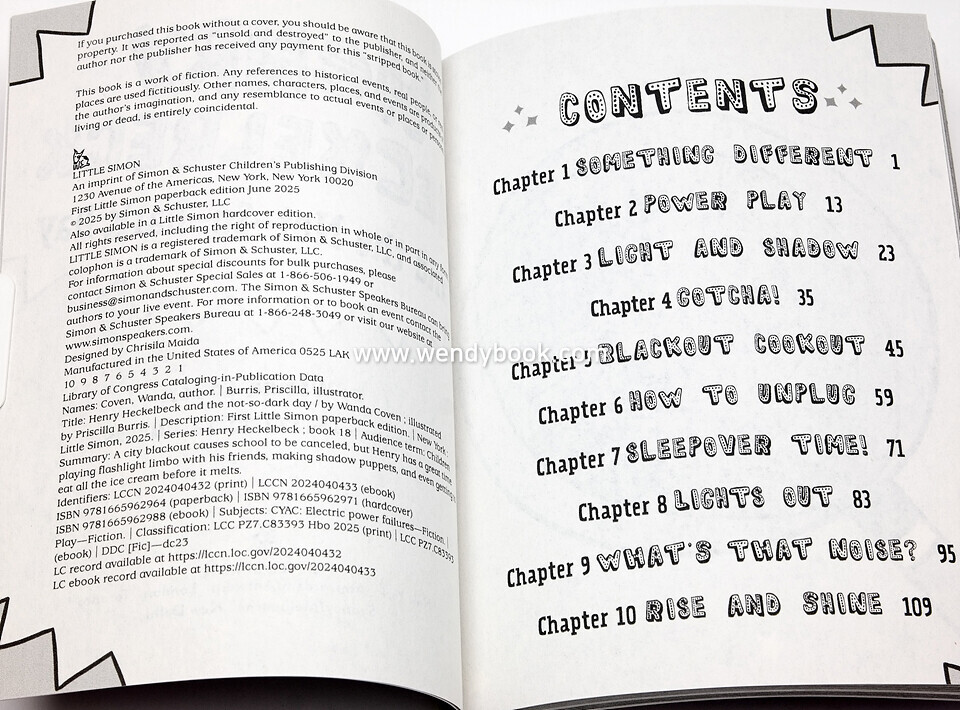 If you purchased this book without a cover, you should be aware that this book is
property. It was reported as "unsold and destroyed" to the publisher, and neither
author nor the publisher has received any payment for this "stripped book."
This book is a work of fiction. Any references to historical events, real people, or
places are used fictitiously. Other names, characters, places, and events are
the author's imagination, and any resemblance to actual events or places or persons,
living or dead, is entirely coincidental.
LITTLE SIMON
An imprint of Simon & Schuster Children's Publishing Division
1230 Avenue of the Americas, New York, New York 10020
First Little Simon paperback edition June 2025
© 2025 by Simon & Schuster, LLC
Also available in a Little Simon hardcover edition.
All rights reserved, including the right of reproduction in whole or in part in any form.
LITTLE SIMON is a registered trademark of Simon & Schuster, LLC, and associated
colophon is a trademark of Simon & Schuster, LLC.
For information about special discounts for bulk purchases, please
contact Simon & Schuster Special Sales at 1-866-506-1949 or
business@simonandschuster.com. The Simon & Schuster Speakers Bureau can bring
authors to your live event. For more information or to book an event contact the
Simon & Schuster Speakers Bureau at 1-866-248-3049 or visit our website at
www.simonspeakers.com.
Designed by Chrisila Maida
Manufactured in the United States of America 0525 LAK
10 9 8 7 6 5 4 3 2 1
Library of Congress Cataloging-in-Publication Data
Names: Coven, Wanda, author. | Burris, Priscilla, illustrator.
Title: Henry Heckelbeck and the not-so-dark day / by Wanda Coven ; illustrated
by Priscilla Burris. | Description: First Little Simon paperback edition. | New York :
Little Simon, 2025. | Series: Henry Heckelbeck ; book 18 | Audience term: Children
Summary: A city blackout causes school to be canceled, but Henry has a great time
playing flashlight limbo with his friends, making shadow puppets, and even getting to
eat all the ice cream before it melts.
Identifiers: LCCN 2024040432 (print) | LCCN 2024040433 (ebook)
ISBN 9781665962964 (paperback) | ISBN 9781665962971 (hardcover)
ISBN 9781665962988 (ebook) | Subjects: CYAC: Electric power failures—Fiction. |
Play—Fiction. | Classification: LCC PZ7.C83393 Hbo 2025 (print) | LCC PZ7.C83393
(ebook) | DDC [Fic]—dc23
LC record available at https://lccn.loc.gov/2024040432
LC ebook record available at https://lccn.loc.gov/2024040433
www.wendybook.com
CONTENTS
Chapter 1 SOMETHING DIFFERENT 1
Chapter 2 POWER PLAY 13
Chapter 3 LIGHT AND SHADOW 23
Chapter 4 GOTCHA! 35
Chapter 5 BLACKOUT COOKOUT 45
Chapter 6 HOW TO UNPLUG 59
Chapter 7 SLEEPOVER TIME! 71
Chapter 8 LIGHTS OUT 83
Chapter 9 WHAT'S THAT NOISE? 95
Chapter 10 RISE AND SHINE 109